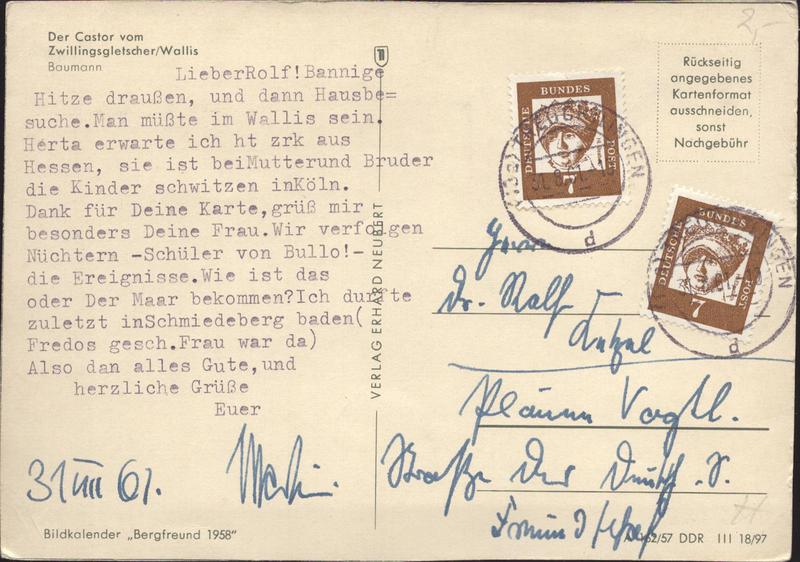 Der Castor vom
Zwillingsgletscher/Wallis
Baumann
LieberRolf!Bannige
Hitze draußen, und dann Hausbe=
suche.Man müßte im Wallis sein.
Herta erwarte ich ht zrk aus
Hessen, sie ist beiMutterund Bruder
die Kinder schwitzen inKöln.
Dank für Deine Karte,grüß mir
besonders Deine Frau.Wir verfolgen
Nüchtern -Schüler von Bullo!-
die Ereignisse.Wie ist das
oder Der Maar bekommen?Ich durfte
zuletzt inSchmiedeberg baden(
Fredos gesch.Frau war da)
Also dan alles Gute,und
herzliche Grüße
Euer
31 VIII 61. Martin.
Bildkalender „Bergfreund 1958"
VERLAG ERHARD NEUBERT
2,-
Rückseitig
angegebenes
Kartenformat
ausschneiden,
sonst
Nachgebühr
DEUTSCHE BUNDES POST
7
d
DEUTSCHE BUNDES POST
7
d
Herrn
Dr. Rolf
Plauen Vogtl.
Straße der Deutsch. S.
Freundschaft
62/57 DDR III 18/97